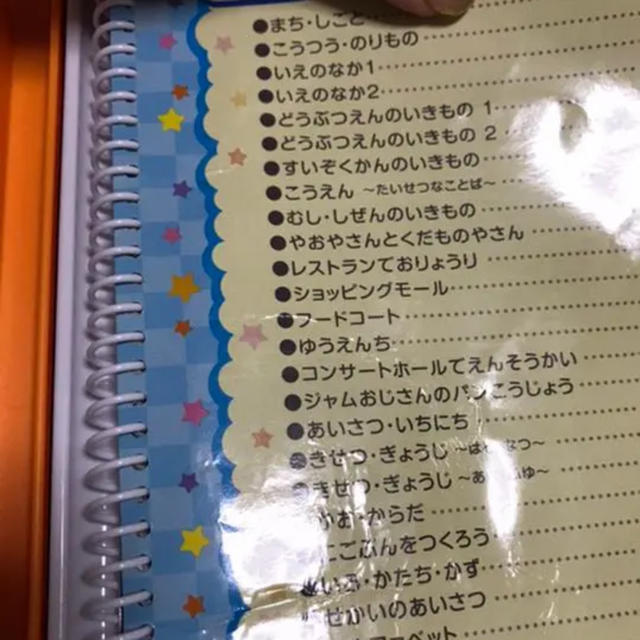 ●まち・しごと
●こうつう・のりもの
●いえのなか1
●いえのなか2
●どうぶつえんのいきもの 1
●どうぶつえんのいきもの 2
●すいぞくかんのいきもの
●こうえん ~たいせつなことば~
●むし・しぜんのいきもの
●やおやさんとくだものやさん
●レストランでおりょうり
●ショッピングモール
●フードコート
●ゆうえんち
●コンサートホールでえんそうかい
●ジャムおじさんのパンこうじょう
●あいさつ・いちにち
●きせつ・ぎょうじ
きせつ・ぎょうじ
からだ
ごぶんをつくろう
かたち・かず
せかいのあいさつ